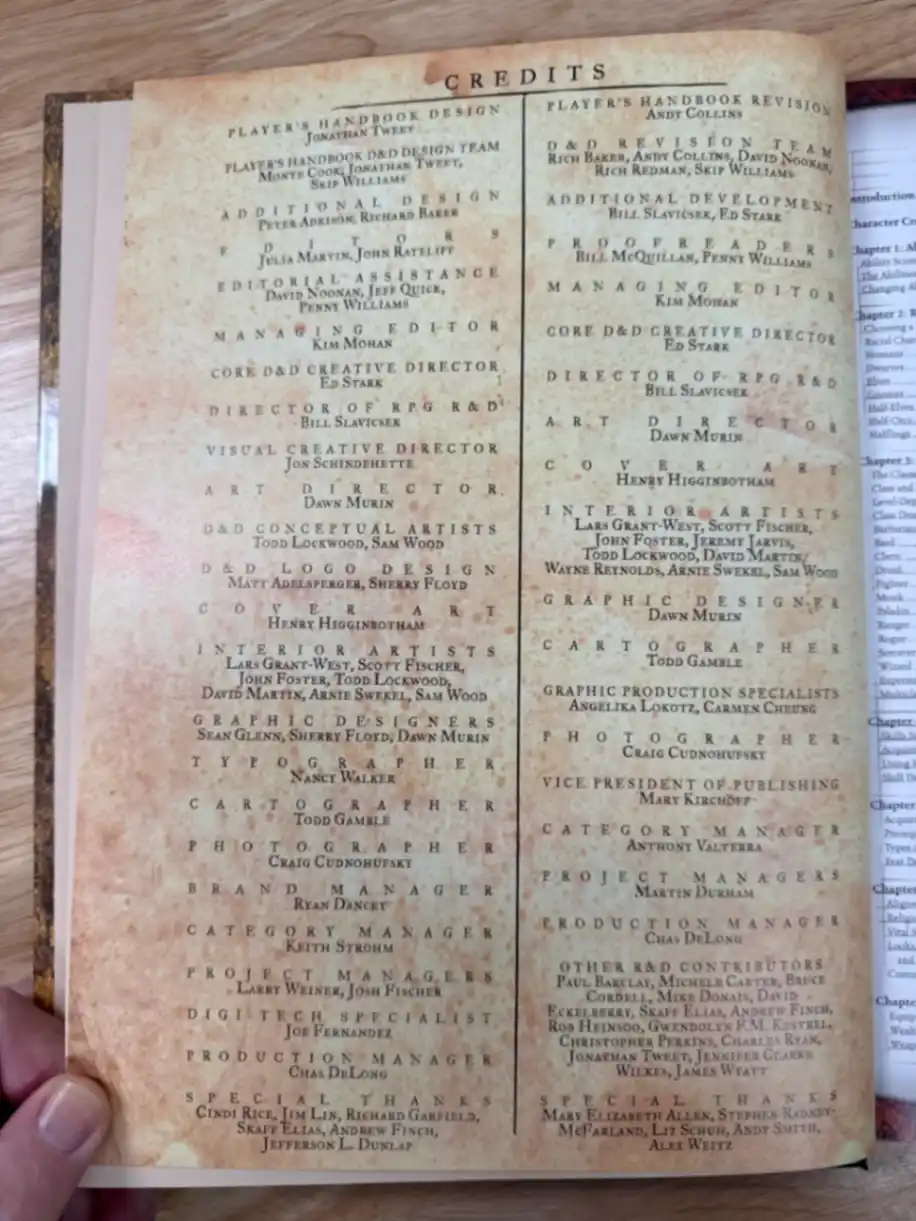 CREDITS
PLAYER'S HANDBOOK DESIGN
JONATHAN TWEET
PLAYER'S HANDBOOK D&D DESIGN TEAM
MONTE COOK, JONATHAN TWEET,
SKIP WILLIAMS
ADDITIONAL DESIGN
PETER ADKISON, RICHARD BAKER
EDITORS
JULIA MARTIN, JOHN RATELIFF
EDITORIAL ASSISTANCE
DAVID NOONAN, JEFF QUICK,
PENNY WILLIAMS
MANAGING EDITOR
KIM MOHAN
CORE D&D CREATIVE DIRECTOR
ED STARK
DIRECTOR OF RPG R&D
BILL SLAVICSEK
VISUAL CREATIVE DIRECTOR
JON SCHINDEHETTE
ART DIRECTOR
DAWN MURIN
D&D CONCEPTUAL ARTISTS
TODD LOCKWOOD, SAM WOOD
D&D LOGO DESIGN
MATT ADELSPERGER, SHERRY FLOYD
COVER ART
HENRY HIGGINBOTHAM
INTERIOR ARTISTS
LARS GRANT-WEST, SCOTT FISCHER,
JOHN FOSTER, TODD LOCKWOOD,
DAVID MARTIN, ARNIE SWEKEL, SAM WOOD
GRAPHIC DESIGNERS
SEAN GLENN, SHERRY FLOYD, DAWN MURIN
TYPOGRAPHER
NANCY WALKER
CARTOGRAPHER
TODD GAMBLE
PHOTOGRAPHER
CRAIG CUDNOHUFSKY
BRAND MANAGER
RYAN DANCEY
CATEGORY MANAGER
KEITH STROHM
PROJECT MANAGERS
LARRY WEINER, JOSH FISCHER
DIGITECH SPECIALIST
JOE FERNANDEZ
PRODUCTION MANAGER
CHAS DELONG
SPECIAL THANKS
CINDI RICE, JIM LIN, RICHARD GARFIELD,
SKAFF ELIAS, ANDREW FINCH,
JEFFERSON L. DUNLAP
PLAYER'S HANDBOOK REVISION
ANDY COLLINS
D&D REVISION TEAM
RICH BAKER, ANDY COLLINS, DAVID NOONAN,
RICH REDMAN, SKIP WILLIAMS
ADDITIONAL DEVELOPMENT
BILL SLAVICSEK, ED STARK
PROOFREADERS
BILL MCQUILLAN, PENNY WILLIAMS
MANAGING EDITOR
KIM MOHAN
CORE D&D CREATIVE DIRECTOR
ED STARK
DIRECTOR OF RPG R&D
BILL SLAVICSEK
ART DIRECTOR
DAWN MURIN
COVER ART
HENRY HIGGINBOTHAM
INTERIOR ARTISTS
LARS GRANT-WEST, SCOTT FISCHER,
JOHN FOSTER, JEREMY JARVIS,
TODD LOCKWOOD, DAVID MARTIN,
WAYNE REYNOLDS, ARNIE SWEKEL, SAM WOOD
GRAPHIC DESIGNER
DAWN MURIN
CARTOGRAPHER
TODD GAMBLE
GRAPHIC PRODUCTION SPECIALISTS
ANGELIKA LOKOTZ, CARMEN CHEUNG
PHOTOGRAPHER
CRAIG CUDNOHUFSKY
VICE PRESIDENT OF PUBLISHING
MARY KIRCHOFF
CATEGORY MANAGER
ANTHONY VALTERRA
PROJECT MANAGERS
MARTIN DURHAM
PRODUCTION MANAGER
CHAS DELONG
OTHER R&D CONTRIBUTORS
PAUL BARCLAY, MICHELE CARTER, BRUCE
CORDELL, MIKE DONAIS, DAVID
ECKELBERRY, SKAFF ELIAS, ANDREW FINCH,
ROB HEINSOO, GWENDOLYN F.M. KESTREL,
CHRISTOPHER PERKINS, CHARLES RYAN,
JONATHAN TWEET, JENNIFER CLARKE
WILKES, JAMES WYATT
SPECIAL THANKS
MARY ELIZABETH ALLEN, STEPHEN RADNEY-
MCFARLAND, LIZ SCHUH, ANDY SMITH,
ALEX WEITZ
Introduction
Chapter 1:
Ability
The Abilities
Changing
Chapter 2:
Choosing
Racial
Humans
Dwarves
Elves
Gnomes
Half-Elves
Half-Orcs
Halflings
Chapter 3:
The
Class and
Class
Bard
Cleric
Druid
Fighter
Monk
Paladin
Ranger
Rogue
Wizard
Chapter
Chapter
Chapter
and
Chapter